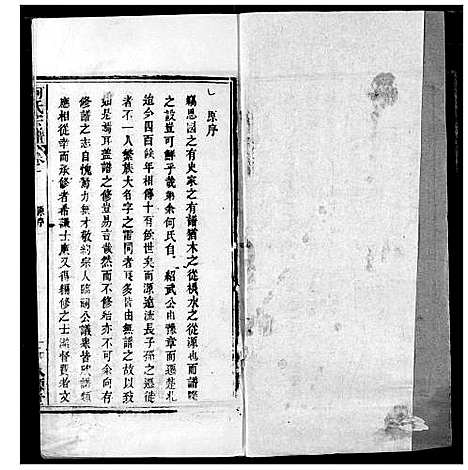 原序
竊思國之有史家之有譜猶木之從根水之從源也而譜
之設豈可鮮乎哉第余何氏自 紹武公由豫章而遷楚札
迨今四百餘年相傳十有餘世矣而源遠流長子孫之遷徙
者不一人繁族大名字之雷同者又多皆由無譜之故以致
如是耳蓋譜之修豈易言哉然而不修始亦余向有
修譜之志自愧勷力無才敬約宗人臨祠公議衆皆欣諾類
應相從幸而承修者希謙士廣又得稱修之士滋督費者文
何氏宗譜 卷 原序